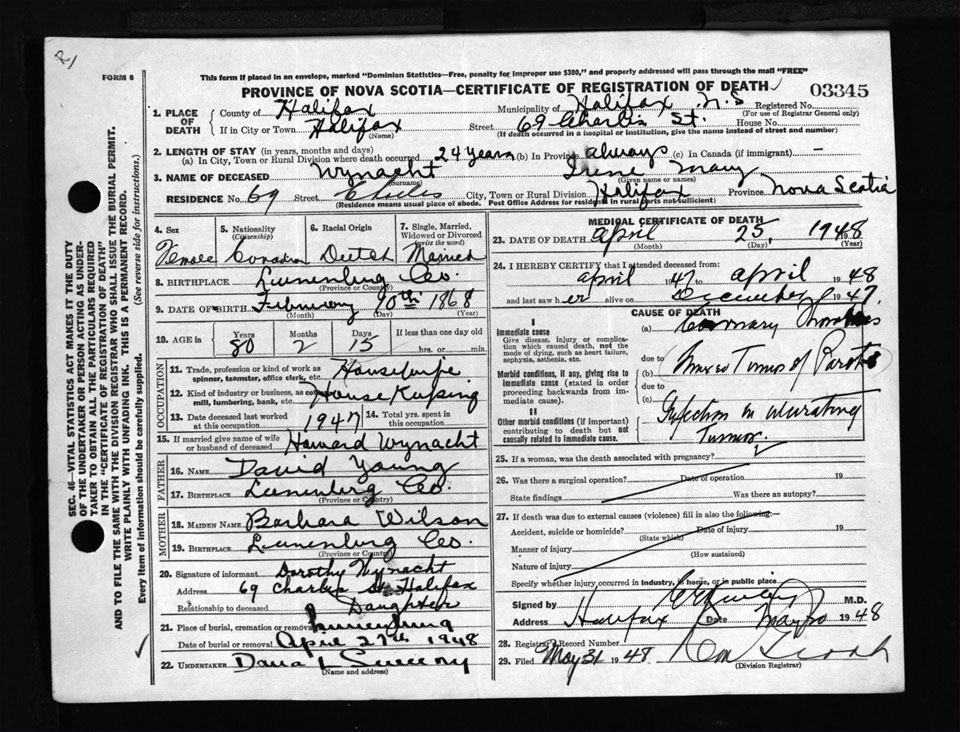 R/
FORM 6
This form if placed in an envelope, marked "Dominion Statistics—Free, penalty for improper use $300," and properly addressed will pass through the mail "FREE"
PROVINCE OF NOVA SCOTIA—CERTIFICATE OF REGISTRATION OF DEATH
03345
1. PLACE OF DEATH
County of Halifax Municipality of Halifax N.S Registered No.
(For use of Registrar General only)
If in City or Town Halifax Street 69 Charles St. House No.
(Name) (If death occurred in a hospital or institution, give the name instead of street and number)
2. LENGTH OF STAY (in years, months and days)
(a) In City, Town or Rural Division where death occurred 24 years (b) In Province always (c) In Canada (if immigrant) —
3. NAME OF DECEASED Wynacht Irene Mary
(Surname) (Given name or names)
RESIDENCE No. 69 Street City, Town or Rural Division Halifax Province Nova Scotia
(Residence means usual place of abode. Post Office Address for residents in rural parts not sufficient)
4. Sex
Female
5. Nationality
(Citizenship)
Canadian
6. Racial Origin
Dutch
7. Single, Married, Widowed or Divorced
(write the word)
Married
8. BIRTHPLACE Lunenburg Co.
(Province or Country)
9. DATE OF BIRTH February 10th 1868
(Month) (Day) (Year)
10. AGE in
Years Months Days If less than one day old
80 2 15 hrs. or min.
OCCUPATION
11. Trade, profession or kind of work as spinner, teamster, office clerk, etc. Housewife
12. Kind of industry or business, as cotton mill, lumbering, bank, etc. House Keeping
13. Date deceased last worked at this occupation 1947
14. Total yrs. spent in this occupation
15. If married give name of wife or husband of deceased Howard Wynacht
FATHER
16. Name David Young
17. Birthplace Lunenburg Co.
(Province or Country)
MOTHER
18. Maiden Name Barbara Wilson
19. Birthplace Lunenburg Co.
(Province or Country)
20. Signature of informant Dorothy Wynacht
Address 69 Charles St Halifax
Relationship to deceased Daughter
21. Place of burial, cremation or removal Lunenburg
Date of burial or removal April 27th 1948
22. UNDERTAKER
(Name and address)
MEDICAL CERTIFICATE OF DEATH
23. DATE OF DEATH April 25, 1948
(Month) (Day) (Year)
24. I HEREBY CERTIFY that I attended deceased from
April 1947 to April 1948
and last saw her alive on December 1947.
CAUSE OF DEATH
I
Immediate cause
Give disease, injury or complication which caused death, not the mode of dying, such as heart failure, asphyxia, asthenia, etc.
Morbid conditions, if any, giving rise to immediate cause (stated in order proceeding backwards from immediate cause).
II
Other morbid conditions (if important) contributing to death but not causally related to immediate cause.
(a) Coronary Thrombosis
due to
(b) Mixed Tumor of Parotid
due to
(c)
Infection in ulcerating
Tumor.
25. If a woman, was the death associated with pregnancy?
26. Was there a surgical operation? Date of operation 19
State findings Was there an autopsy?
27. If death was due to external causes (violence) fill in also the following:—
Accident, suicide or homicide? Date of injury 19
(State which)
Manner of injury
(How sustained)
Nature of injury
Specify whether injury occurred in industry, in home, or in public place.
Signed by M.D.
Address Halifax Date May 20 1948
28. Registrar's Record Number
29. Filed May 31 1948
(Division Registrar)
SEC. 46—VITAL STATISTICS ACT MAKES IT THE DUTY
OF THE UNDERTAKER OR PERSON ACTING AS UNDER-
TAKER TO OBTAIN ALL THE PARTICULARS REQUIRED
IN THE "CERTIFICATE OF REGISTRATION OF DEATH"
AND TO FILE THE SAME WITH THE DIVISION REGISTRAR WHO SHALL ISSUE THE BURIAL PERMIT.
WRITE PLAINLY WITH UNFADING INK. THIS IS A PERMANENT RECORD.
Every item of information should be carefully supplied. (See reverse side for instructions.)